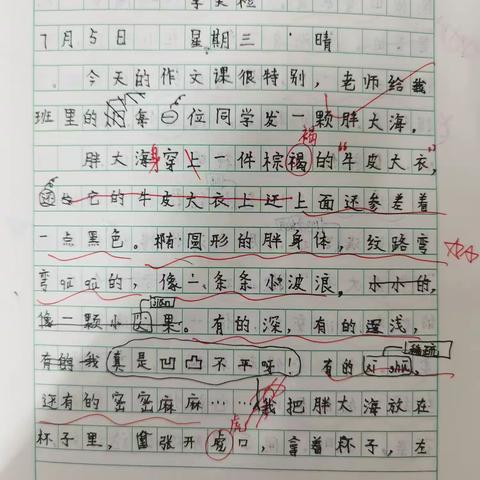 7月5日 星期三 晴
今天的作文课很特别，老师给我
班里的每一位同学发一颗胖大海。
胖大海身穿上一件棕褐的“牛皮大衣，”
它的牛皮大衣上还上面还参差着
一点黑色。拥圆形的胖身体，纹路弯
弯曲曲的，像一条条小波浪，小小的，
像一颗小果。有的深，有的浅，
有的我真是凹凸不平呀！有的xī shū，稀疏
还有的密密麻麻……我把胖大海放在
杯子里，张开虎口，拿着杯子，左